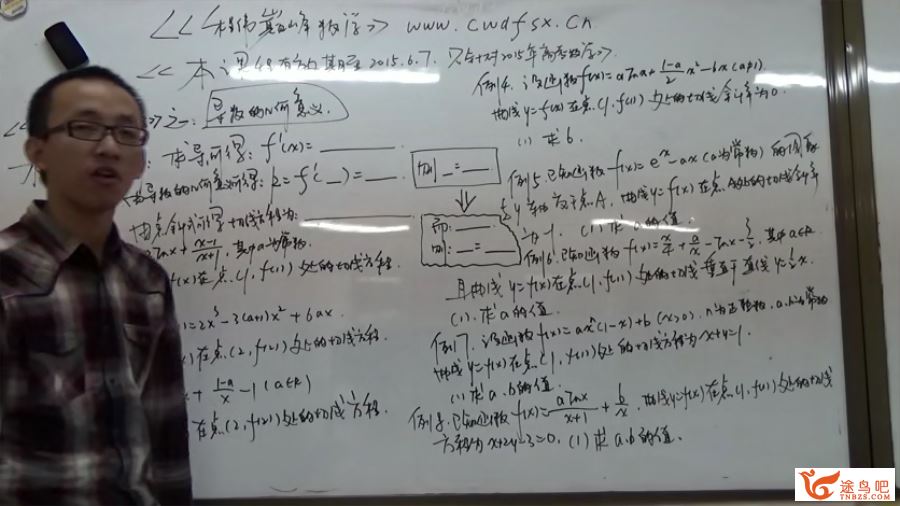 <<程伟巅峰数学>> www.cwdfsx.cn
<<本课程有效期至2015.6.7.只针对2015年高考数学>>.
>之一:导数的几何意义.
求导可得: f'(x)=
由导数的几何意义可得: k=f'(_)=__.
由点斜式可得切线方程为:
lnx+\frac{x-1}{x+1},其中a为常数.
f(x)在点(1,f(1))处的切线方程.
)=2x³-3(a+1)x²+6ax.
)在点(2,f(2))处的切线方程.
+\frac{1-a}{x}-1(a∈R)
在点(2,f(2))处的切线方程.
则_=__
而:
则: _=__
例4.设函数f(x)=alnx+\frac{1-a}{2}x²-bx(a≠1).
曲线y=f(x)在点(1,f(1))处的切线斜率为0.
(1)求b.
例5.已知函数f(x)=eˣ-ax(a为常数)的图象
与y轴交于点A,曲线y=f(x)在点A处的切线斜率
为-1. (1)求a的值.
例6.已知函数f(x)=\frac{x}{4}+\frac{a}{x}-lnx-\frac{3}{2},其中a∈R
且曲线y=f(x)在点(1,f(1))处的切线垂直于直线y=\frac{1}{2}x.
(1).求a的值.
例7.设函数f(x)=axⁿ(1-x)+b(x>0),n为正整数,a,b为常数
曲线y=f(x)在点(1,f(1))处的切线方程为x+y=1.
(1)求a.b的值.
例8.已知函数f(x)=\frac{alnx}{x+1}+\frac{b}{x},曲线y=f(x)在点(1,f(1))处的切线
方程为x+2y-3=0. (1)求a.b的值.
途鸟吧
TNBZS.COM